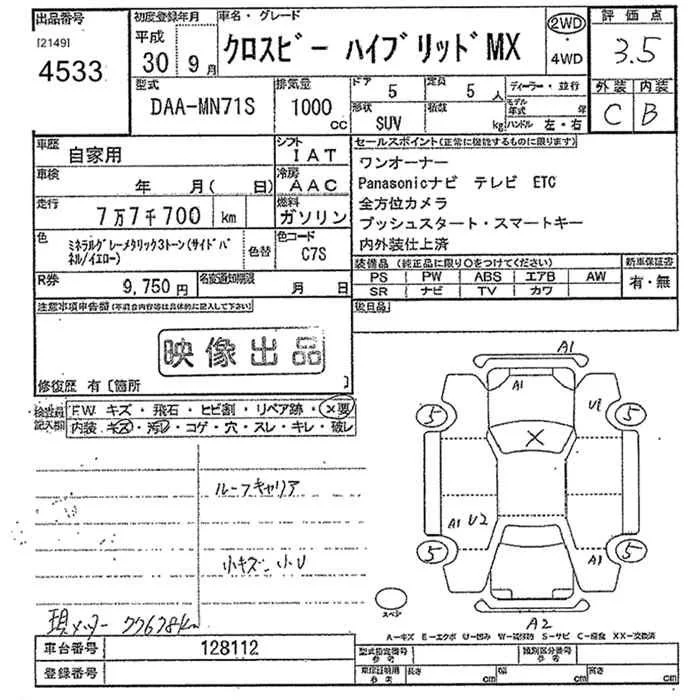 出品番号 初度登録年月 車名・グレード 評価点
[2149] 4533
平成 30年 9月
クロスビー ハイブリッドMX
2WD・4WD
3.5
外装 内装
C B
型式 排気量 ドア 5 定員 5人 ディーラー・並行
DAA-MN71S 1000cc
形状 SUV 積載 kg
モデル年式 年
ハンドル 左・右
車歴 自家用 シフト IAT
車検 年 月( 日) 冷房 AAC
走行 7万7千700 km 燃料 ガソリン
色 ミネラルグレーメタリック3トーン(サイドパネル/イエロー) 色替 色コード C7S
R券 9,750円 名変通知期限 月 日
セールスポイント(正常に機能するものに限ります)
ワンオーナー
Panasonicナビ テレビ ETC
全方位カメラ
プッシュスタート・スマートキー
内外装仕上済
装備品(純正品に限り○をつけてください) 新車保証書
PS PW ABS エアB AW 有・無
SR ナビ TV カワ
後日品
注意事項申告欄(不具合内容等は具体的に記入して下さい)
映像出品
修復歴 有〔箇所 〕
検査員記入欄
F.W キズ・飛石・ヒビ割・リペア跡・×要
内装・キズ・汚レ・コゲ・穴・スレ・キレ・破レ
ルーフキャリア
小キズ 小U
現メーター 77678km
A1
A1
U1
5 5
X
A1 U2
5 5
A1
スペア
A2
A-キズ E-エクボ U-凹み W-補修跡 S-サビ C-腐食 XX-交換済
車台番号 128112
登録番号
型式指定番号 参考 類別区分番号 参考
長さ cm 幅 cm 高さ cm